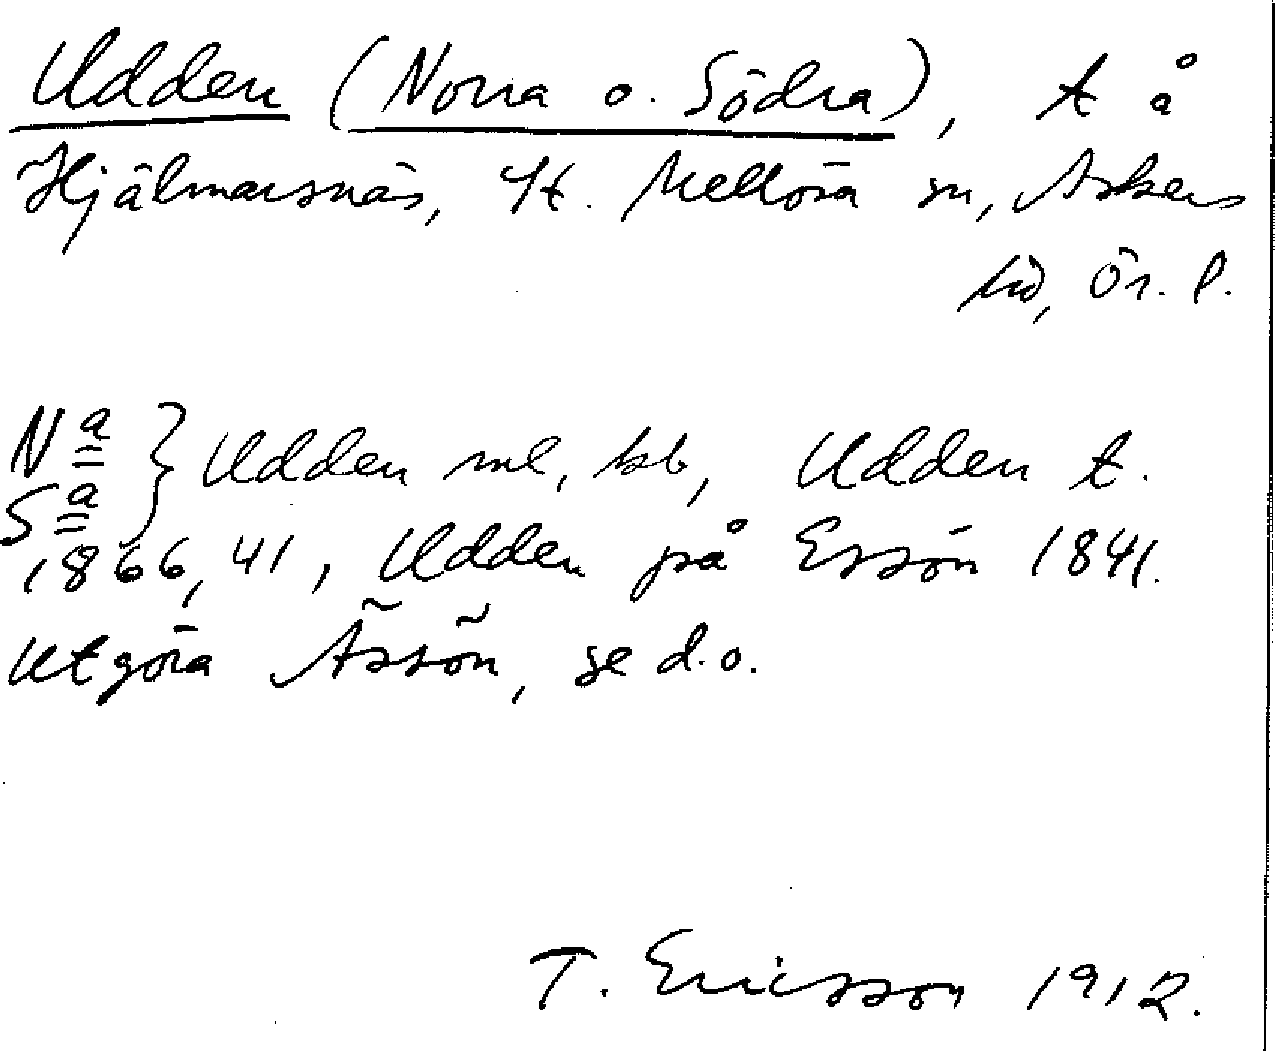 Udden (Norra o. Södra), t å
Hjälmarsnäs, St. Mellösa sn, Askers
hd, Ör. l.
Nᵃ
Sᵃ } Udden ml, kb, Udden t.
1866, 41, Udden på Essön 1841.
Utgöra Ässön, se d.o.
T. Ericsson 1912.